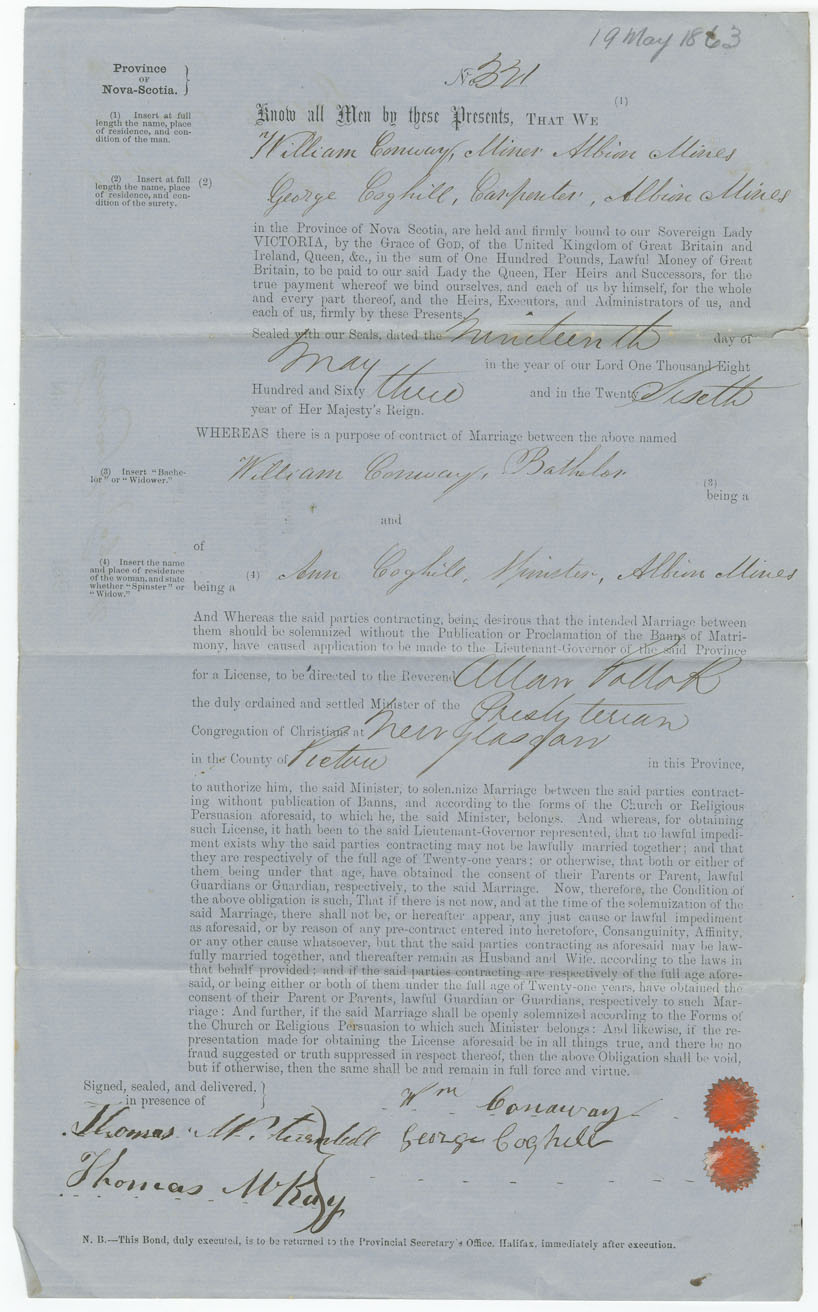 19 May 1863
Province
OF
Nova-Scotia.
No 331
(1)
Know all Men by these Presents, THAT WE
(1) Insert at full
length the name, place
of residence, and con-
dition of the man.
William Conway, Miner Albion Mines
(2) Insert at full
length the name, place
of residence, and con-
dition of the surety.
(2) George Coghill, Carpenter, Albion Mines
in the Province of Nova Scotia, are held and firmly bound to our Sovereign Lady
VICTORIA, by the Grace of GOD, of the United Kingdom of Great Britain and
Ireland, Queen, &c., in the sum of One Hundred Pounds, Lawful Money of Great
Britain, to be paid to our said Lady the Queen, Her Heirs and Successors, for the
true payment whereof we bind ourselves, and each of us by himself, for the whole
and every part thereof, and the Heirs, Executors, and Administrators of us, and
each of us, firmly by these Presents.
Sealed with our Seals, dated the Nineteenth day of
May in the year of our Lord One Thousand Eight
Hundred and Sixty three and in the Twenty Sixth
year of Her Majesty's Reign.
WHEREAS there is a purpose of contract of Marriage between the above named
(3) Insert "Bache-
lor" or "Widower."
William Conway, Bathelor
(3)
being a
and
of
(4) Insert the name
and place of residence
of the woman, and state
whether "Spinster" or
"Widow."
(4) Ann Coghill, Spinster, Albion Mines
being a
And Whereas the said parties contracting, being desirous that the intended Marriage between
them should be solemnized without the Publication or Proclamation of the Banns of Matri-
mony, have caused application to be made to the Lieutenant-Governor of the said Province
for a License, to be directed to the Reverend Allan Pollok
the duly ordained and settled Minister of the Presbyterian
Congregation of Christians at New Glasgow
in the County of Pictou in this Province,
to authorize him, the said Minister, to solemnize Marriage between the said parties contract-
ing without publication of Banns, and according to the forms of the Church or Religious
Persuasion aforesaid, to which he, the said Minister, belongs. And whereas, for obtaining
such License, it hath been to the said Lieutenant-Governor represented, that no lawful impedi-
ment exists why the said parties contracting may not be lawfully married together; and that
they are respectively of the full age of Twenty-one years; or otherwise, that both or either of
them being under that age, have obtained the consent of their Parents or Parent, lawful
Guardians or Guardian, respectively, to the said Marriage. Now, therefore, the Condition of
the above obligation is such, That if there is not now, and at the time of the solemnization of the
said Marriage, there shall not be, or hereafter appear, any just cause or lawful impediment
as aforesaid, or by reason of any pre-contract entered into heretofore, Consanguinity, Affinity,
or any other cause whatsoever, but that the said parties contracting as aforesaid may be law-
fully married together, and thereafter remain as Husband and Wife, according to the laws in
that behalf provided; and if the said parties contracting are respectively of the full age afore-
said, or being either or both of them under the full age of Twenty-one years, have obtained the
consent of their Parent or Parents, lawful Guardian or Guardians, respectively to such Mar-
riage: And further, if the said Marriage shall be openly solemnized according to the Forms of
the Church or Religious Persuasion to which such Minister belongs: And likewise, if the re-
presentation made for obtaining the License aforesaid be in all things true, and there be no
fraud suggested or truth suppressed in respect thereof, then the above Obligation shall be void,
but if otherwise, then the same shall be and remain in full force and virtue.
Signed, sealed, and delivered,
in presence of
Wm Conaway
Thomas Turnbull
George Coghill
Thomas McKay
N. B.—This Bond, duly executed, is to be returned to the Provincial Secretary's Office, Halifax, immediately after execution.